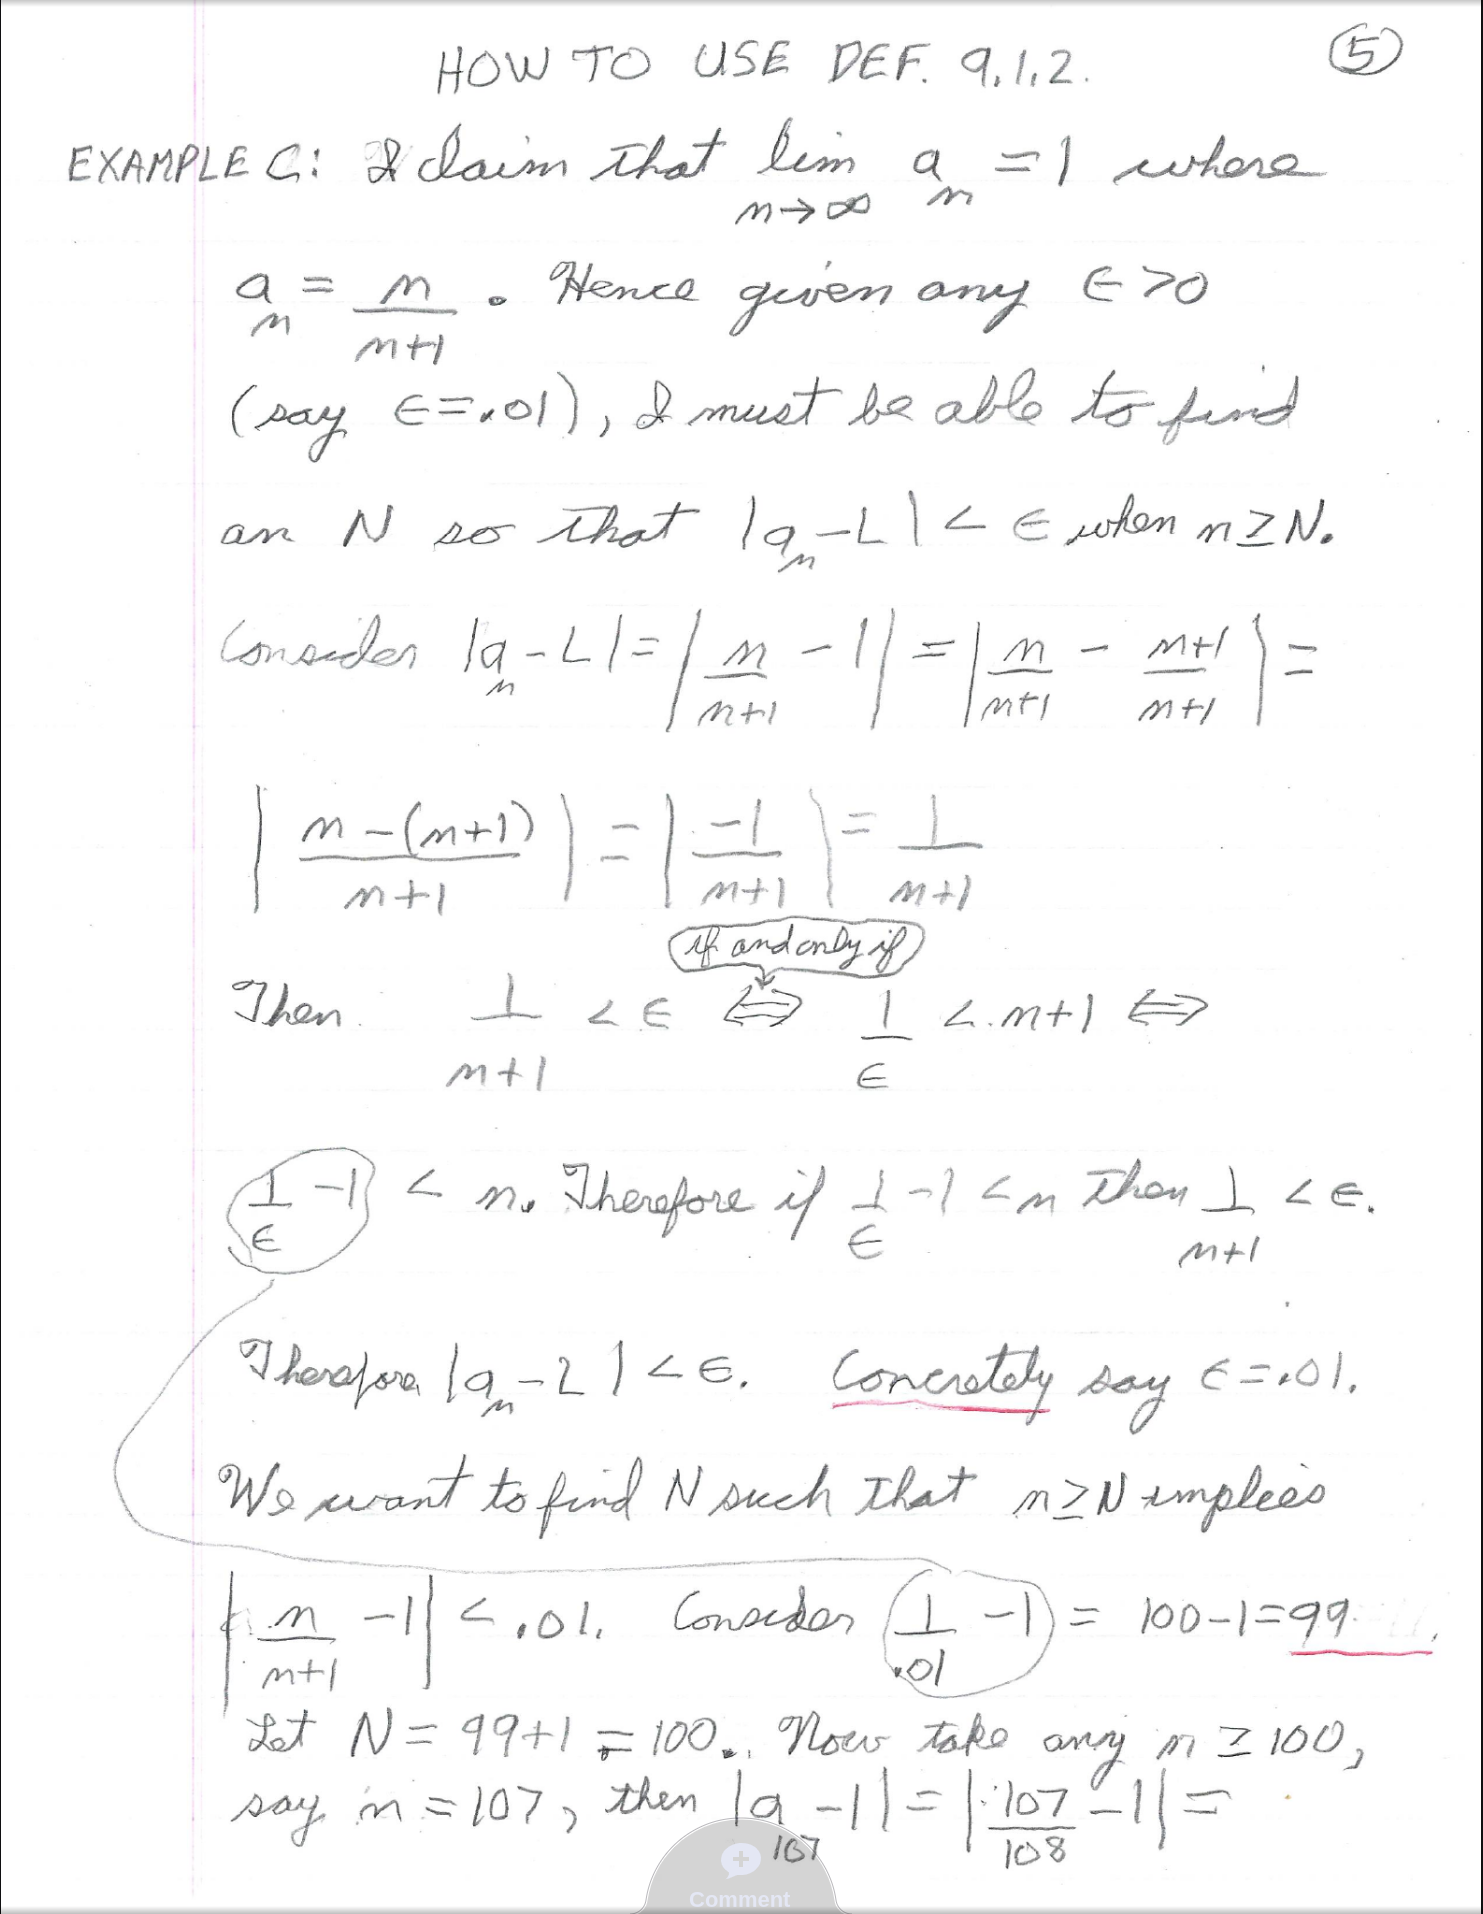 HOW TO USE DEF. 9.1.2. 5
EXAMPLE C: I claim that lim n→∞ a_n = 1 where
a_n = n/(n+1) . Hence given any ϵ>0
(say ϵ=.01), I must be able to find
an N so that |a_n-L| < ϵ when n≥N.
Consider |a_n-L| = |n/(n+1) - 1| = |n/(n+1) - (n+1)/(n+1)| =
|(n-(n+1))/(n+1)| = |-1/(n+1)| = 1/(n+1)
if and only if
Then 1/(n+1) < ϵ ⇔ 1/ϵ < n+1 ⇔
1/ϵ -1 < n. Therefore if 1/ϵ -1 < n then 1/(n+1) < ϵ.
Therefore |a_n-L| < ϵ. Concretely say ϵ=.01.
We want to find N such that n≥N implies
|n/(n+1) -1| < .01. Consider (1/.01 -1) = 100-1=99.
Let N = 99+1 = 100. Now take any n ≥ 100,
say n = 107, then |a_107 -1| = |107/108 -1| =
Comment